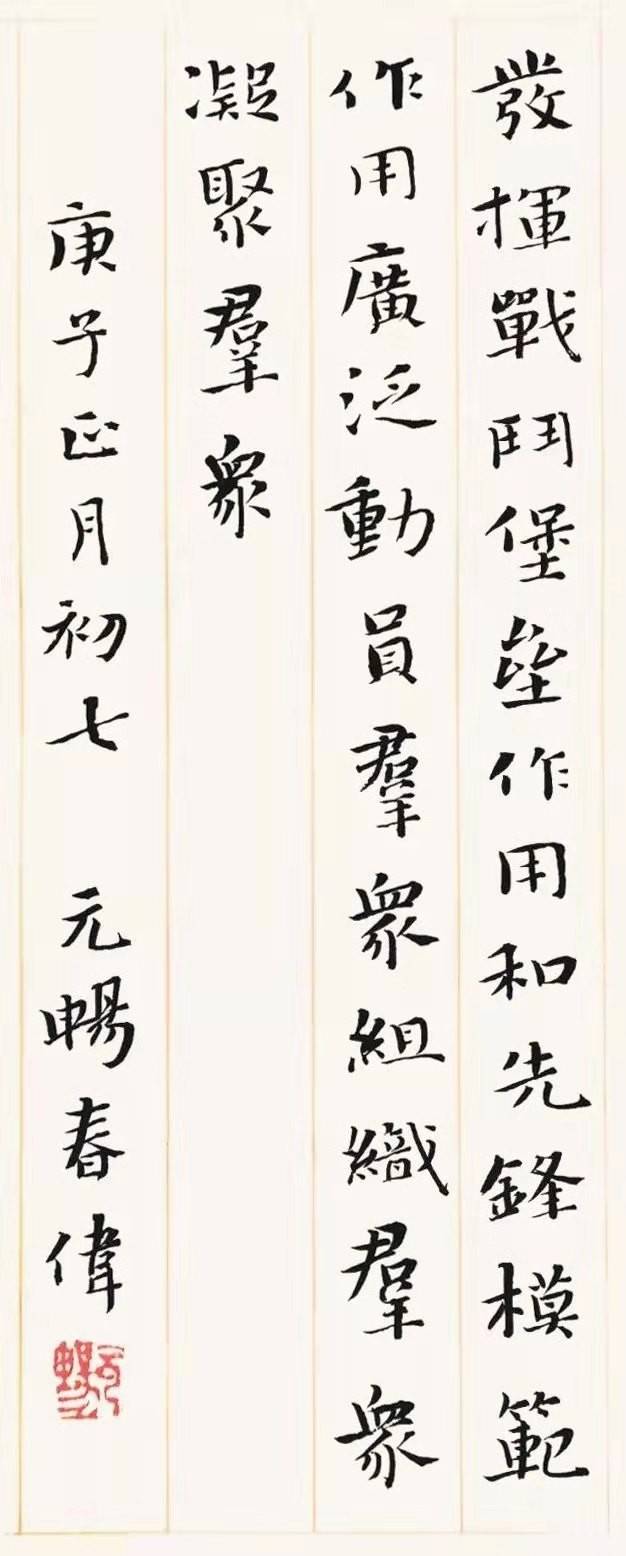 發揮戰鬥堡壘作用和先鋒模範
作用廣泛動員羣衆組織羣衆
凝聚羣衆
庚子正月初七 元暢春偉